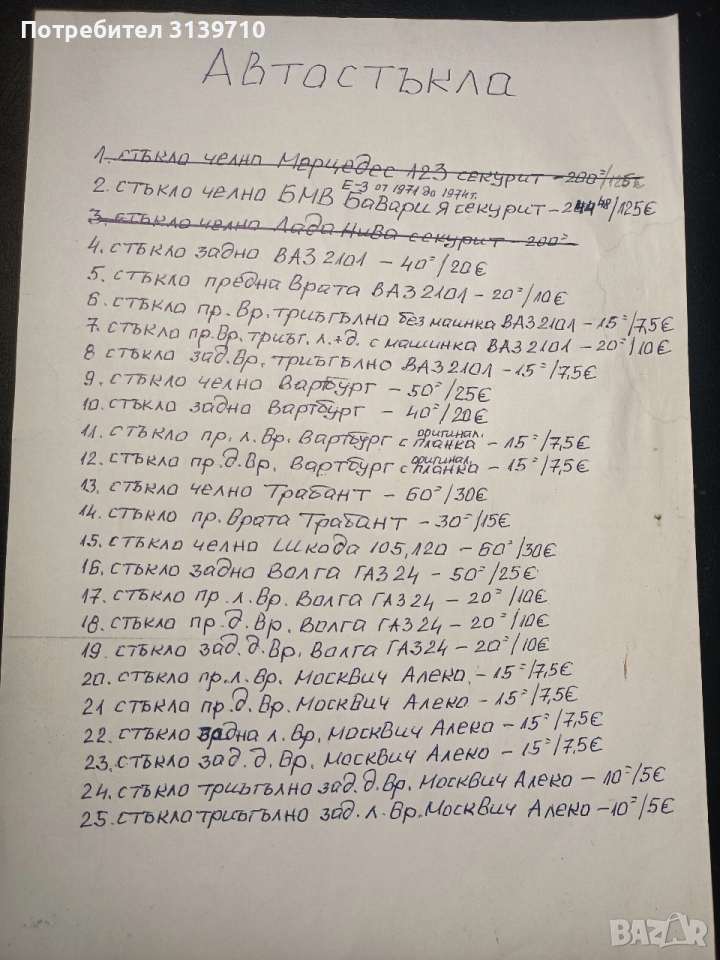 Потребител 3139710
Автостъкла
1. стъкло челно Мерцедес 123 секурит - 200=/125€
Е-3 от 1971 до 1974г.
2. стъкло челно БМВ Бавария секурит - 244 48/125€
3. стъкло челно Лада Нива секурит - 200=
4. стъкло задно ВАЗ 2101 - 40=/20€
5. стъкло предна врата ВАЗ 2101 - 20=/10€
6. стъкло пр. Вр. триъгълно без машинка ВАЗ 2101 - 15=/7,5€
7. стъкло пр. Вр. триъг. л.+д. с машинка ВАЗ 2101 - 20=/10€
8 стъкло зад. Вр. триъгълно ВАЗ 2101 - 15=/7,5€
9. стъкло челно Вартбург - 50=/25€
10. стъкло задно Вартбург - 40=/20€
11. стъкло пр. л. Вр. Вартбург с оригинал. планка - 15=/7,5€
12. стъкло пр. д. Вр. Вартбург с оригинал. планка - 15=/7,5€
13. стъкло челно Трабант - 60=/30€
14. стъкло пр. Врата Трабант - 30=/15€
15. стъкло челно Шкода 105, 120 - 60=/30€
16. стъкло задно Волга ГАЗ 24 - 50=/25€
17. стъкло пр. л. Вр. Волга ГАЗ 24 - 20=/10€
18. стъкло пр. д. Вр. Волга ГАЗ 24 - 20=/10€
19. стъкло зад. д. Вр. Волга ГАЗ 24 - 20=/10€
20. стъкло пр. л. Вр. Москвич Алеко - 15=/7,5€
21 стъкло пр. д. Вр. Москвич Алеко - 15=/7,5€
22. стъкло задна л. Вр. Москвич Алеко - 15=/7,5€
23. стъкло зад. д. Вр. Москвич Алеко - 15=/7,5€
24. стъкло триъгълно зад. д. Вр. Москвич Алеко - 10=/5€
25. стъкло триъгълно зад. л. Вр. Москвич Алеко - 10=/5€
BAZAR